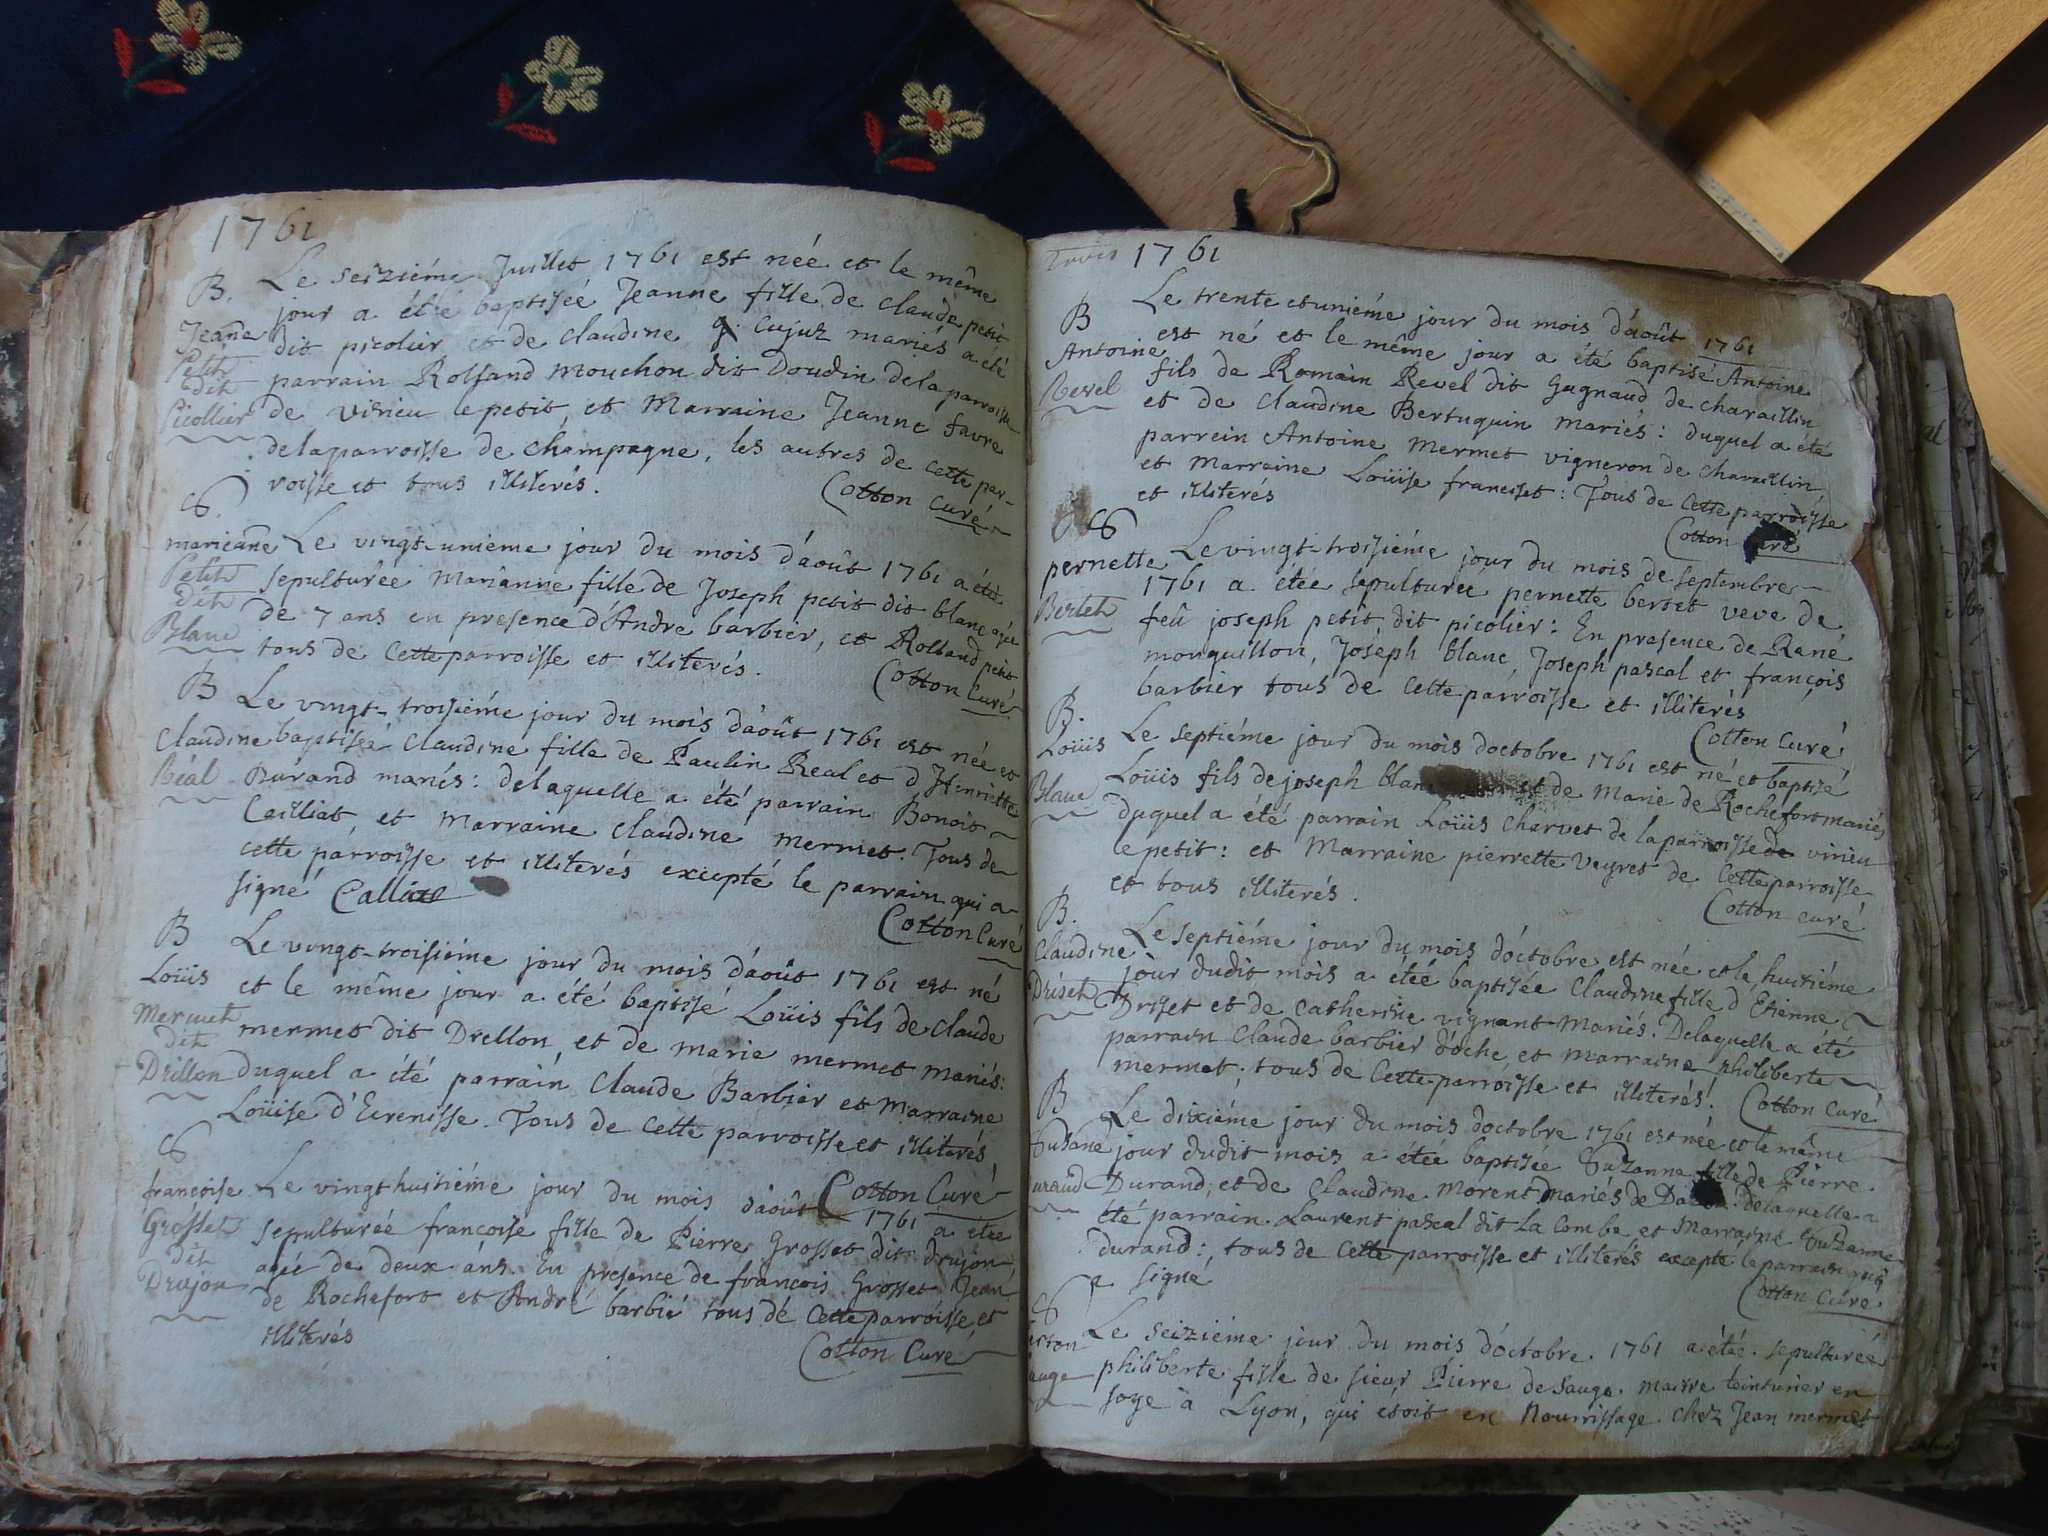 1761
B. Le seiziéme Juillet 1761 est née et le même
jour a étée baptisée Jeanne fille de claude petit
Jeane dit picolier et de claudine Cujuz mariés a eté
Petit dit parrain Rolland mouchon dit Doudin delaparroisse
Picollier de virieu lepetit et Marraine Jeanne favre
delaparroisse de champagne, les autres de cette par-
roisse et tous illiterés. Cotton Curé
S.
marieane Le vingt-unieme jour du mois d'août 1761 a été
Petit sepulturée marianne fille de Joseph petit dit blanc agée
dit de 7 ans en presence d'Andre barbier, et Rolland petit
Blanc tous de cetteparroisse et illiterés. Cotton Curé
B Le vingt-troisiéme jour du mois d'août 1761 est née et
Claudine baptisée claudine fille de Paulin Real et d'Henriette
Réal Durand mariés: delaquelle a été parrain Benoit
Cailliat et marraine claudine mermet. Tous de
cette parroisse et illiterés exepté le parrain qui a
signé Calliat
Cotton Curé
B Le vingt-troisiéme jour du mois d'août 1761 est né
Loüis et le même jour a été baptisé Loüis fils de claude
Mermet mermet dit Drellon et de marie mermet mariés:
dit
Drillon duquel a été parrain claude Barbier et Marraine
Loüise d'Evenisse. Tous de cette parroisse et illiterés
Cotton Curé
S
francoise Le vingt huitiéme jour du mois d'août 1761 a étée
Grosset sepulturée francoise fille de Pierre Grosset dit drujon
dit agée de deux ans. En presence de francois Grosset Jean
Drujon de Rochefort et André barbié tous dé cetteparroisse et
illiterés Cotton Curé
1761
B Le trente etuniéme jour du mois d'août 1761
Antoine est né et le même jour a été baptisé Antoine
Revel fils de Romain Revel dit Gagnaud de charaillin
et de claudine Bertuquin mariés: duquel a été
parrein Antoine mermet vigneron de charaillin
et marraine Loüise francset: Tous de cetteparroisse
et illiterés
Cotton Curé
S
pernette Le vingt-troisiéme jour du mois de septembre
1761 a étée sepulturée pernette berset veve de
Berseth feû joseph petit dit picolier: En presence de Rané
monguillon, Joseph blanc, Joseph pascal et françois
barbier tous de cetteparroisse et illiterés
Cotton Curé
B.
Loüis Le septiéme jour du mois doctobre 1761 est né et baptisé
Loüis fils de joseph blanc et de Marie de Rochefort mariés
Blanc duquel a été parrain Loüis charvet de laparroisse de virieu
lepetit: et Marraine pierrette veyret de cetteparroisse
et tous illiterés.
Cotton curé
B.
Claudine Le septiéme jour du mois d'octobre est née et le huitiéme
jour dudit mois a étéé baptisée claudine fille d'Etienne
Driseth Driset et de catherine vignant mariés. Delaquelle a été
parrain claude barbier d'oche et marraine philiberte
mermet: tous de cetteparroisse et illiterés. Cotton Curé
B Le dixiéme jour du mois doctobre 1761 est née et le même
Susane jour dudit mois a étée baptisée Suzanne fille de Pierre
urand Durand, et de claudine morent mariés de delaquelle a
été parrain Laurent pascal dit la Combe et Marraine Suzanne
durand: tous de cetteparroisse et illiterés excepté leparrain qui
a signé
Cotton Curé
S
Le seiziéme jour du mois d'octobre 1761 a étée sepulturée
philiberte fille de sieur Pierre de Sauge maitre teinturier en
soye à Lyon, qui etoit en nourrissage chez Jean mermet